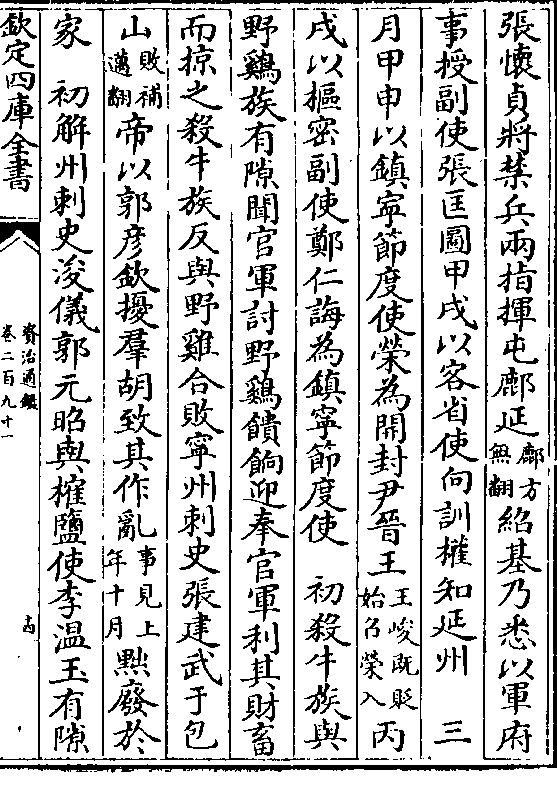 張懷貞將禁兵兩指揮屯鄜延鄜方無翻紹基乃悉以軍府
事授副使張匡圖甲戌以客省使向訓權知延州　三
月甲申以鎮寧節度使榮為開封尹晉王王峻既貶始召榮入丙
戌以樞密副使鄭仁誨為鎮寧節度使　初殺牛族與
野鷄族有隙聞官軍討野鷄饋餉迎奉官軍利其財畜
而掠之殺牛族反與野雞合敗寧州刺史張建武于包
山敗補邁翻帝以郭彦欽擾羣胡致其作亂事見上年十月黜廢於
家　初解州刺史浚儀郭元昭與榷鹽使李温玉有隙
欽定四庫全書
資治通鑑
卷二百九十一